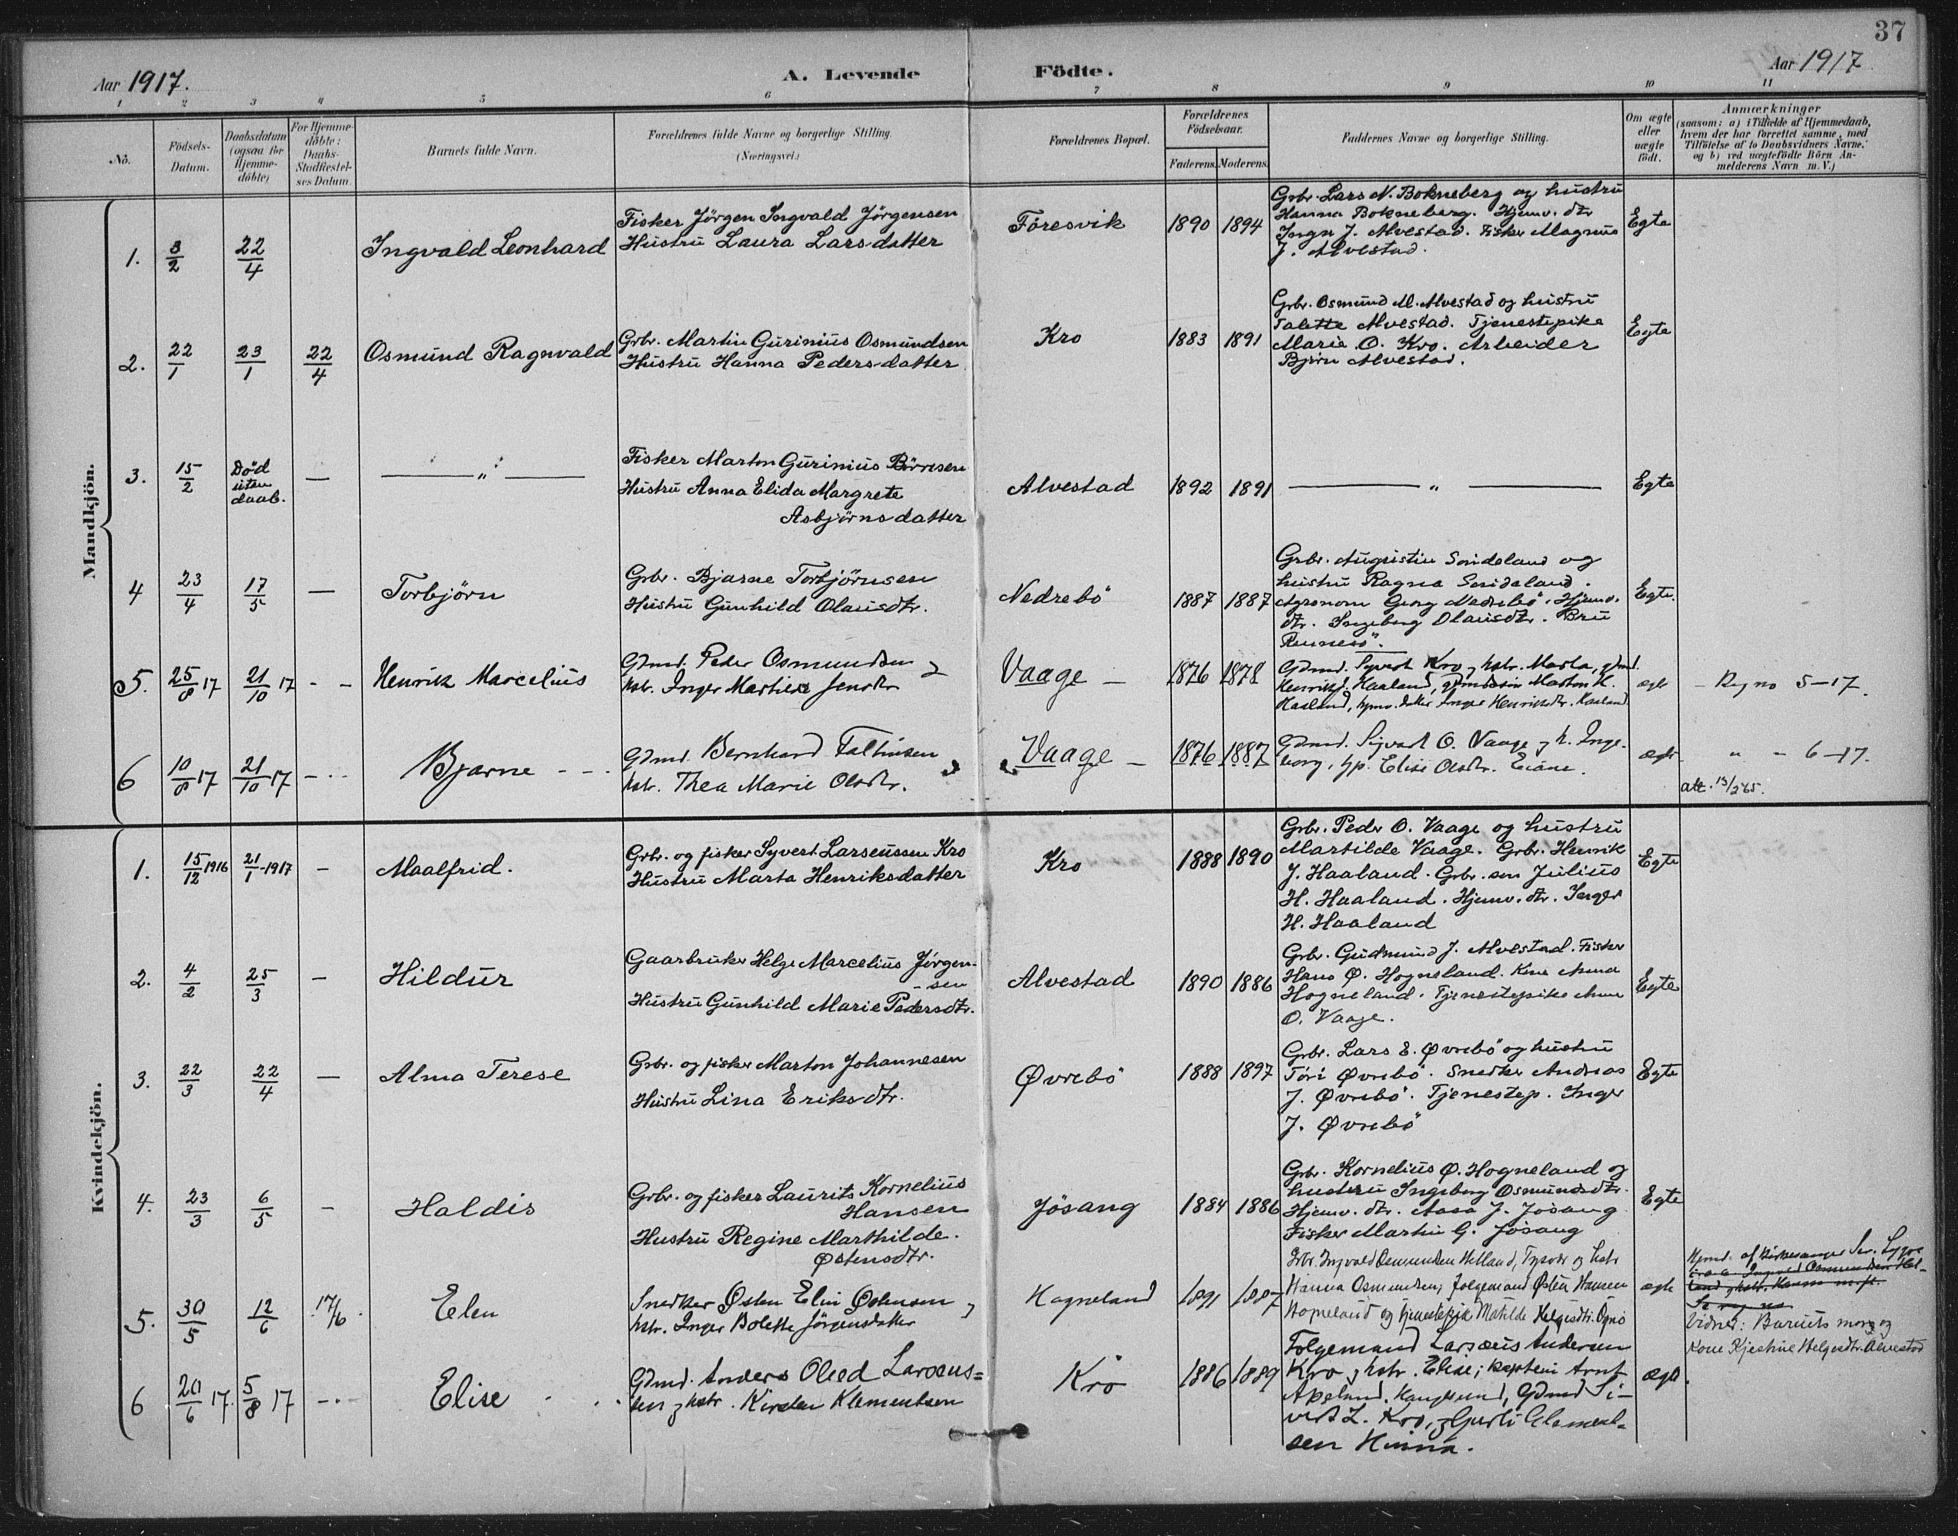 37
Aar 1917.
A. Levende Födte.
Aar 1917
1 2 3 4 5 6 7 8 9 10 11
No.
Födsels-
Datum.
Daabsdatum
(ogsaa for
Hjemme-
döbte)
For Hjemme-
döbte:
Daabs-
Stadfæstel-
ses Datum
Barnets fulde Navn.
Forældrenes fulde Navne og borgerlige Stilling.
(Næringsvei.)
Forældrenes Bopæl.
Forældrenes
Födselsaar.
Faderens. Moderens.
Faddernes Navne og borgerlige Stilling.
Om ægte
eller
uægte
födt.
Anmærkninger
(saasom: a) i Tilfælde af Hjemmedaab,
hvem der har forrettet samme, med
Tilföielse af to Daabsvidners Navne,
og b) ved uægtefödte Börn An-
melderens Navn m. V.)
Mandkjön.
1. 8/2 22/4 Ingvald Leonhard
Fisker Jørgen Ingvald Jørgensen
Hustru Laura Larsdatter
Føresvik 1890 1894
Grbr. Lars N. Bokneberg og hustru
Hanna Bokneberg. Hjemv. dtr
Inga J. Alvestad. Fisker Magnus
J. Alvestad.
Egte
2. 22/1 23/1 22/4 Osmund Ragnvald
Grbr. Martin Gurinius Osmundsen
Hustru Hanna Pedersdatter
Kro 1883 1891
Grbr. Osmund M. Alvestad og hustru
Talette Alvestad. Tjenestepike
Maria O. Kro. Arbeider
Bjørn Alvestad.
Egte
3. 15/2 Død
uten
daab. — — „ —
Fisker Marton Gurinius Børresen
Hustru Anna Elida Margrete
Asbjørnsdatter
Alvestad 1892 1891 — „ — Egte
4 23/4 17/5 — Torbjörn
Grbr. Bjarne Torbjørnsen
Hustru Gunhild Olausdtr.
Nedrebö 1887 1887
Grbr. Augustin Sondeland og
hustru Ragna Sondeland.
Agronom Georg Nedrebö. Hjemv.
dtr. Ingeborg Olausdtr. Bru
Rennesö.
Egte.
5. 25/8 17 21/10 17 - - Henrik Marcelius
Gdmd. Peder Osmundsen
hst. Inger Martilde Jensdtr
Vaage — 1876 1878
Gdmd. Syvert Kro, hstr. Marta, gdmd.
Henrik J. Haaland, Marton H.
Haaland, Inger Henriksdtr. Haaland
egte - Regno 5-17.
6 10/8 17 21/10 17 - Bjarne - -
Gdmd. Bernhard Faltinsen
hst. Thea Marie Olsdtr.
Vaage — 1876 1887
Gdmd. Sigvart O. Vaage, h. Inge-
borg, Elise Olsdtr. Eiane.
ægte „ - 6-17.
att. 13/2 65.
Kvindekjön.
1. 15/12 1916 21/1 - 1917 — Maalfrid.
Grbr. og fisker Syvert Larseussen Kro
Hustru Marta Henriksdatter
Kro 1888 1890
Grbr. Peder O. Vaage og hustru
Martilde Vaage. Grbr. Henrik
J. Haaland. Grbr. søn Julius
H. Haaland. Hjemv. dtr. Inger
H. Haaland
Egte
2. 4/2 25/3 — Hildur
Gaarbruker Helge Marcelius Jørgen-
-sen
Hustru Gunhild Marie Pedersdtr.
Alvestad 1890 1886
Grbr. Gudmund J. Alvestad. Fisker
Hans Ø. Hogneland. Kone Anna
Hogneland. Tjenestepike Anna
O. Vaage.
Egte
3. 22/3 22/4 — Alma Terese
Grbr. og fisker Marton Johannesen
Hustru Lina Eriksdtr.
Øvrebö 1888 1897
Grbr. Lars E. Øvrebö og hustru
Töri Øvrebö. Snedker Andreas
J. Øvrebö. Tjenestep. Inger
J. Øvrebö
Egte
4. 23/3 6/5 - Haldis
Grbr. og fisker Laurits Kornelius
Hansen
Hustru Regine Marthilde
Østensdtr.
Jösang 1884 1886
Grbr. Kornelius Ø. Hogneland og
hustru Ingeborg Osmundsdtr.
Hjemv. dtr. Aasa J. Jösang
Fisker Martin G. Jösang
Egte
5. 30/5 12/6 17/6 Elen
Snedker Østen Elin Østensen
hst. Inger Bolette Jörgensdatter
Hogneland 1891 1887
Grbr. Ingvald Osmundsen Helland, Tysvær og hstr
Hanna Osmundsen, Følgemand Østen Hansen
Hogneland og tjenestepike Matilde Helgesdtr. Ognö
egte
Hjmd. af Kirkesanger
Vidner: Barnets mor og
Kone Kjestine Helgesdtr. Alvestad
6 20/6 17. 5/8 17 - Elise
Gdmd. Anders Oled Larseus=
sen, hstr. Kirsten Klementsen
Kro 1886 1889
Følgemand Larseus Andersen
Kro, hstr. Elise; kaptein Arnt
Apeland, Haugesund, Gdmd Si-
vert L. Kro, Gurli Clement-
sen Hinna.
ægte.